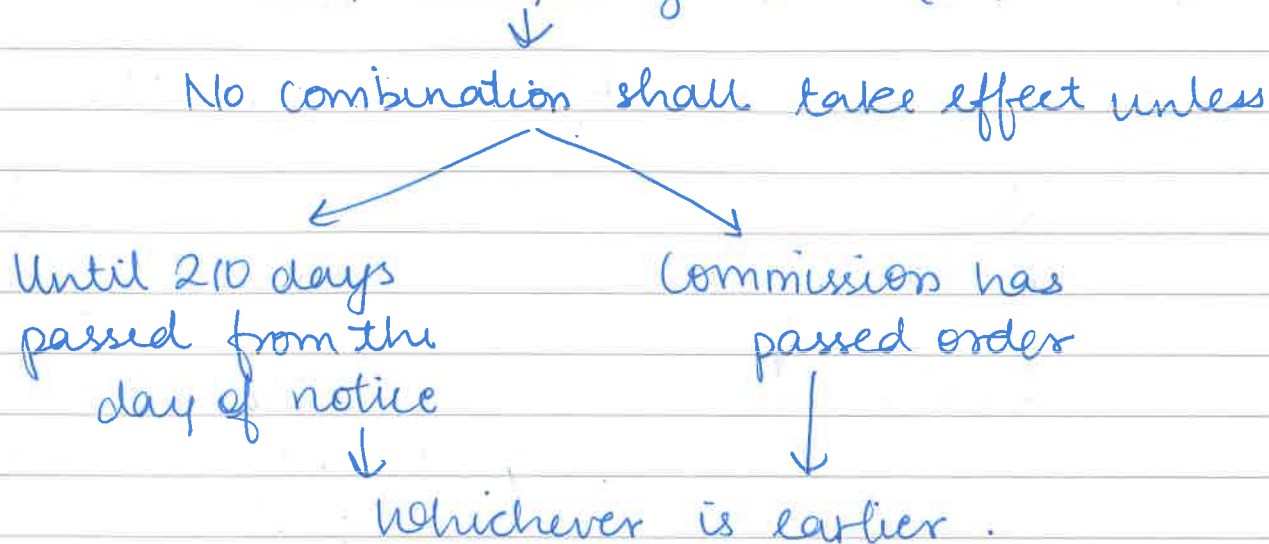 No combination shall take effect unless
Until 210 days
passed from the
day of notice
Commission has
passed order
whichever is earlier.